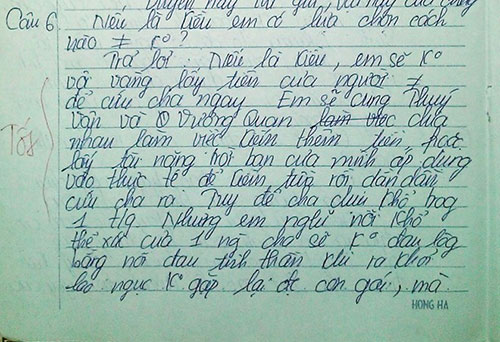 Quyền này từ giã, vai này của chúng
Câu 6. Nếu là Kiều em có lựa chọn cách
nào ≠ k°?
Trả lời: Nếu là Kiều, em sẽ K°
vội vàng lấy tiền của người ≠
để cứu cha ngay Em sẽ cùng Thúy
Vân và Vương Quan làm việc chia
nhau làm việc kiếm thêm tiền, hoặc
lấy tài năng trời ban của mình áp dụng
vào thực tế để kiếm tiền rồi dần dần
cứu cha ra. Tuy để cha chịu khổ
1 t/g Nhưng em nghĩ nỗi khổ
thể xác của 1 ng cha sẽ K° đau lòg
bằng nỗi đau tinh thần khi ra khỏi
lao ngục K° gặp lại đc con gái, mà
Tốt
HONG HA